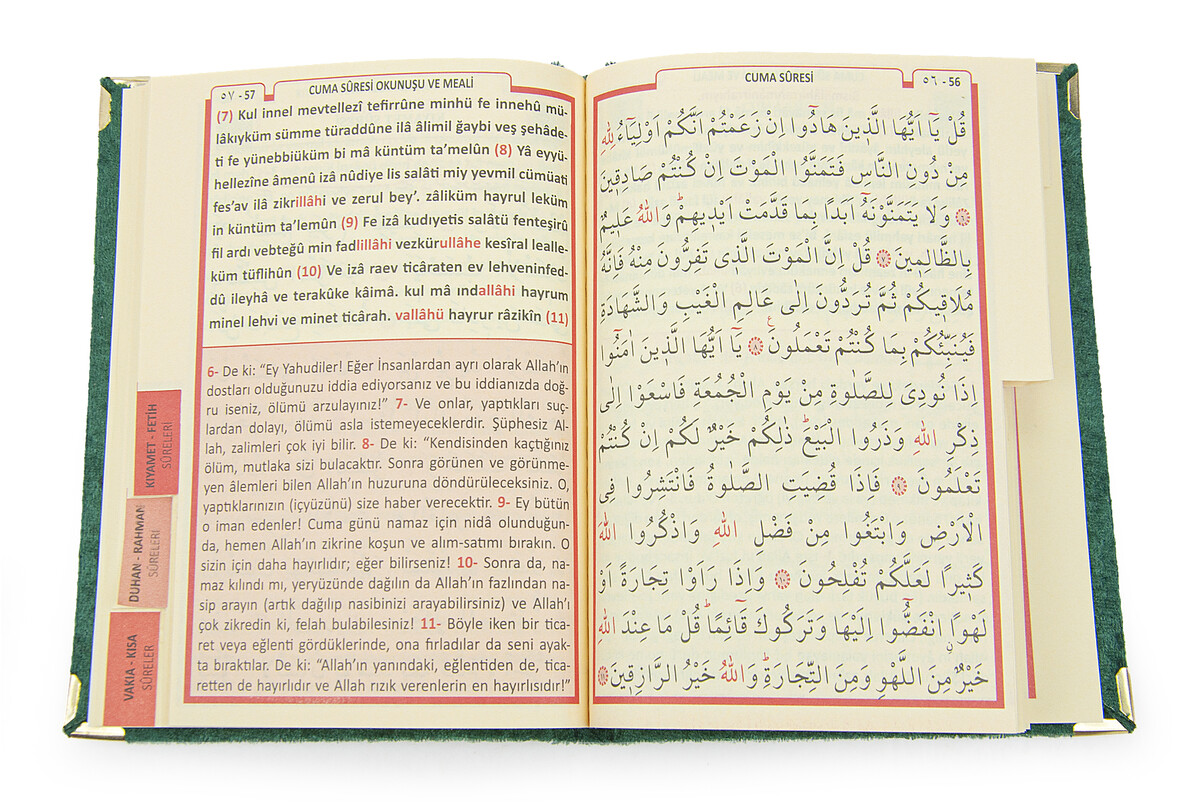 CUMA SÛRESİ
٥٦ - 56
قُلْ يَٓا اَيُّهَا الَّذ۪ينَ هَادُٓوا اِنْ زَعَمْتُمْ اَنَّكُمْ اَوْلِيَٓاءُ لِلّٰهِ
مِنْ دُونِ النَّاسِ فَتَمَنَّوُا الْمَوْتَ اِنْ كُنْتُمْ صَادِق۪ينَ
﴿٦﴾ وَلَا يَتَمَنَّوْنَهُٓ اَبَدًا بِمَا قَدَّمَتْ اَيْد۪يهِمْۜ وَاللّٰهُ عَل۪يمٌ
بِالظَّالِم۪ينَ ﴿٧﴾ قُلْ اِنَّ الْمَوْتَ الَّذ۪ي تَفِرُّونَ مِنْهُ فَاِنَّهُ
مُلَاق۪يكُمْ ثُمَّ تُرَدُّونَ اِلٰى عَالِمِ الْغَيْبِ وَالشَّهَادَةِ
فَيُنَبِّئُكُمْ بِمَا كُنْتُمْ تَعْمَلُونَ۟ ﴿٨﴾ يَٓا اَيُّهَا الَّذ۪ينَ اٰمَنُٓوا
اِذَا نُودِيَ لِلصَّلٰوةِ مِنْ يَوْمِ الْجُمُعَةِ فَاسْعَوْا اِلٰى
ذِكْرِ اللّٰهِ وَذَرُوا الْبَيْعَۜ ذٰلِكُمْ خَيْرٌ لَكُمْ اِنْ كُنْتُمْ
تَعْلَمُونَ ﴿٩﴾ فَاِذَا قُضِيَتِ الصَّلٰوةُ فَانْتَشِرُوا فِي
الْاَرْضِ وَابْتَغُوا مِنْ فَضْلِ اللّٰهِ وَاذْكُرُوا اللّٰهَ
كَث۪يرًا لَعَلَّكُمْ تُفْلِحُونَ ﴿١٠﴾ وَاِذَا رَاَوْا تِجَارَةً اَوْ
لَهْوًاۨ انْفَضُّٓوا اِلَيْهَا وَتَرَكُوكَ قَٓائِمًاۜ قُلْ مَا عِنْدَ اللّٰهِ
خَيْرٌ مِنَ اللَّهْوِ وَمِنَ التِّجَارَةِۜ وَاللّٰهُ خَيْرُ الرَّازِق۪ينَ ﴿١١﴾
٥٧ - 57
CUMA SÛRESİ OKUNUŞU VE MEALİ
(7) Kul innel mevtellezî tefirrûne minhü fe innehû mü-
lâkıyküm sümme türaddûne ilâ âlimil ğaybi veş şehâde-
ti fe yünebbiüküm bi mâ küntüm ta’melûn (8) Yâ eyyü-
hellezîne âmenû izâ nûdiye lis salâti miy yevmil cümüati
fes’av ilâ zikrillâhi ve zerul bey’. zâliküm hayrul leküm
in küntüm ta’lemûn (9) Fe izâ kudıyetis salâtü fenteşirû
fil ardı vebteğû min fadlillâhi vezkürullâhe kesîral lealle-
küm tüflihûn (10) Ve izâ raev ticâraten ev lehveninfed-
dû ileyhâ ve terakûke kâimâ. kul mâ ındallâhi hayrum
minel lehvi ve minet ticârah. vallâhü hayrur râzikîn (11)
6- De ki: “Ey Yahudiler! Eğer İnsanlardan ayrı olarak Allah’ın
dostları olduğunuzu iddia ediyorsanız ve bu iddianızda doğ-
ru iseniz, ölümü arzulayınız!” 7- Ve onlar, yaptıkları suç-
lardan dolayı, ölümü asla istemeyeceklerdir. Şüphesiz Al-
lah, zalimleri çok iyi bilir. 8- De ki: “Kendisinden kaçtığınız
ölüm, mutlaka sizi bulacaktır. Sonra görünen ve görünme-
yen âlemleri bilen Allah’ın huzuruna döndürüleceksiniz. O,
yaptıklarınızın (içyüzünü) size haber verecektir. 9- Ey bütün
o iman edenler! Cuma günü namaz için nidâ olunduğun-
da, hemen Allah’ın zikrine koşun ve alım-satımı bırakın. O
sizin için daha hayırlıdır; eğer bilirseniz! 10- Sonra da, na-
maz kılındı mı, yeryüzünde dağılın da Allah’ın fazlından na-
sip arayın (artık dağılıp nasibinizi arayabilirsiniz) ve Allah’ı
çok zikredin ki, felah bulabilesiniz! 11- Böyle iken bir tica-
ret veya eğlenti gördüklerinde, ona fırladılar da seni ayak-
ta bıraktılar. De ki: “Allah’ın yanındaki, eğlentiden de, tica-
retten de hayırlıdır ve Allah rızık verenlerin en hayırlısıdır!”
KIYAMET - FETİH
SÛRELERİ
DUHAN - RAHMAN
SÛRELERİ
VAKIA - KISA
SÛRELER